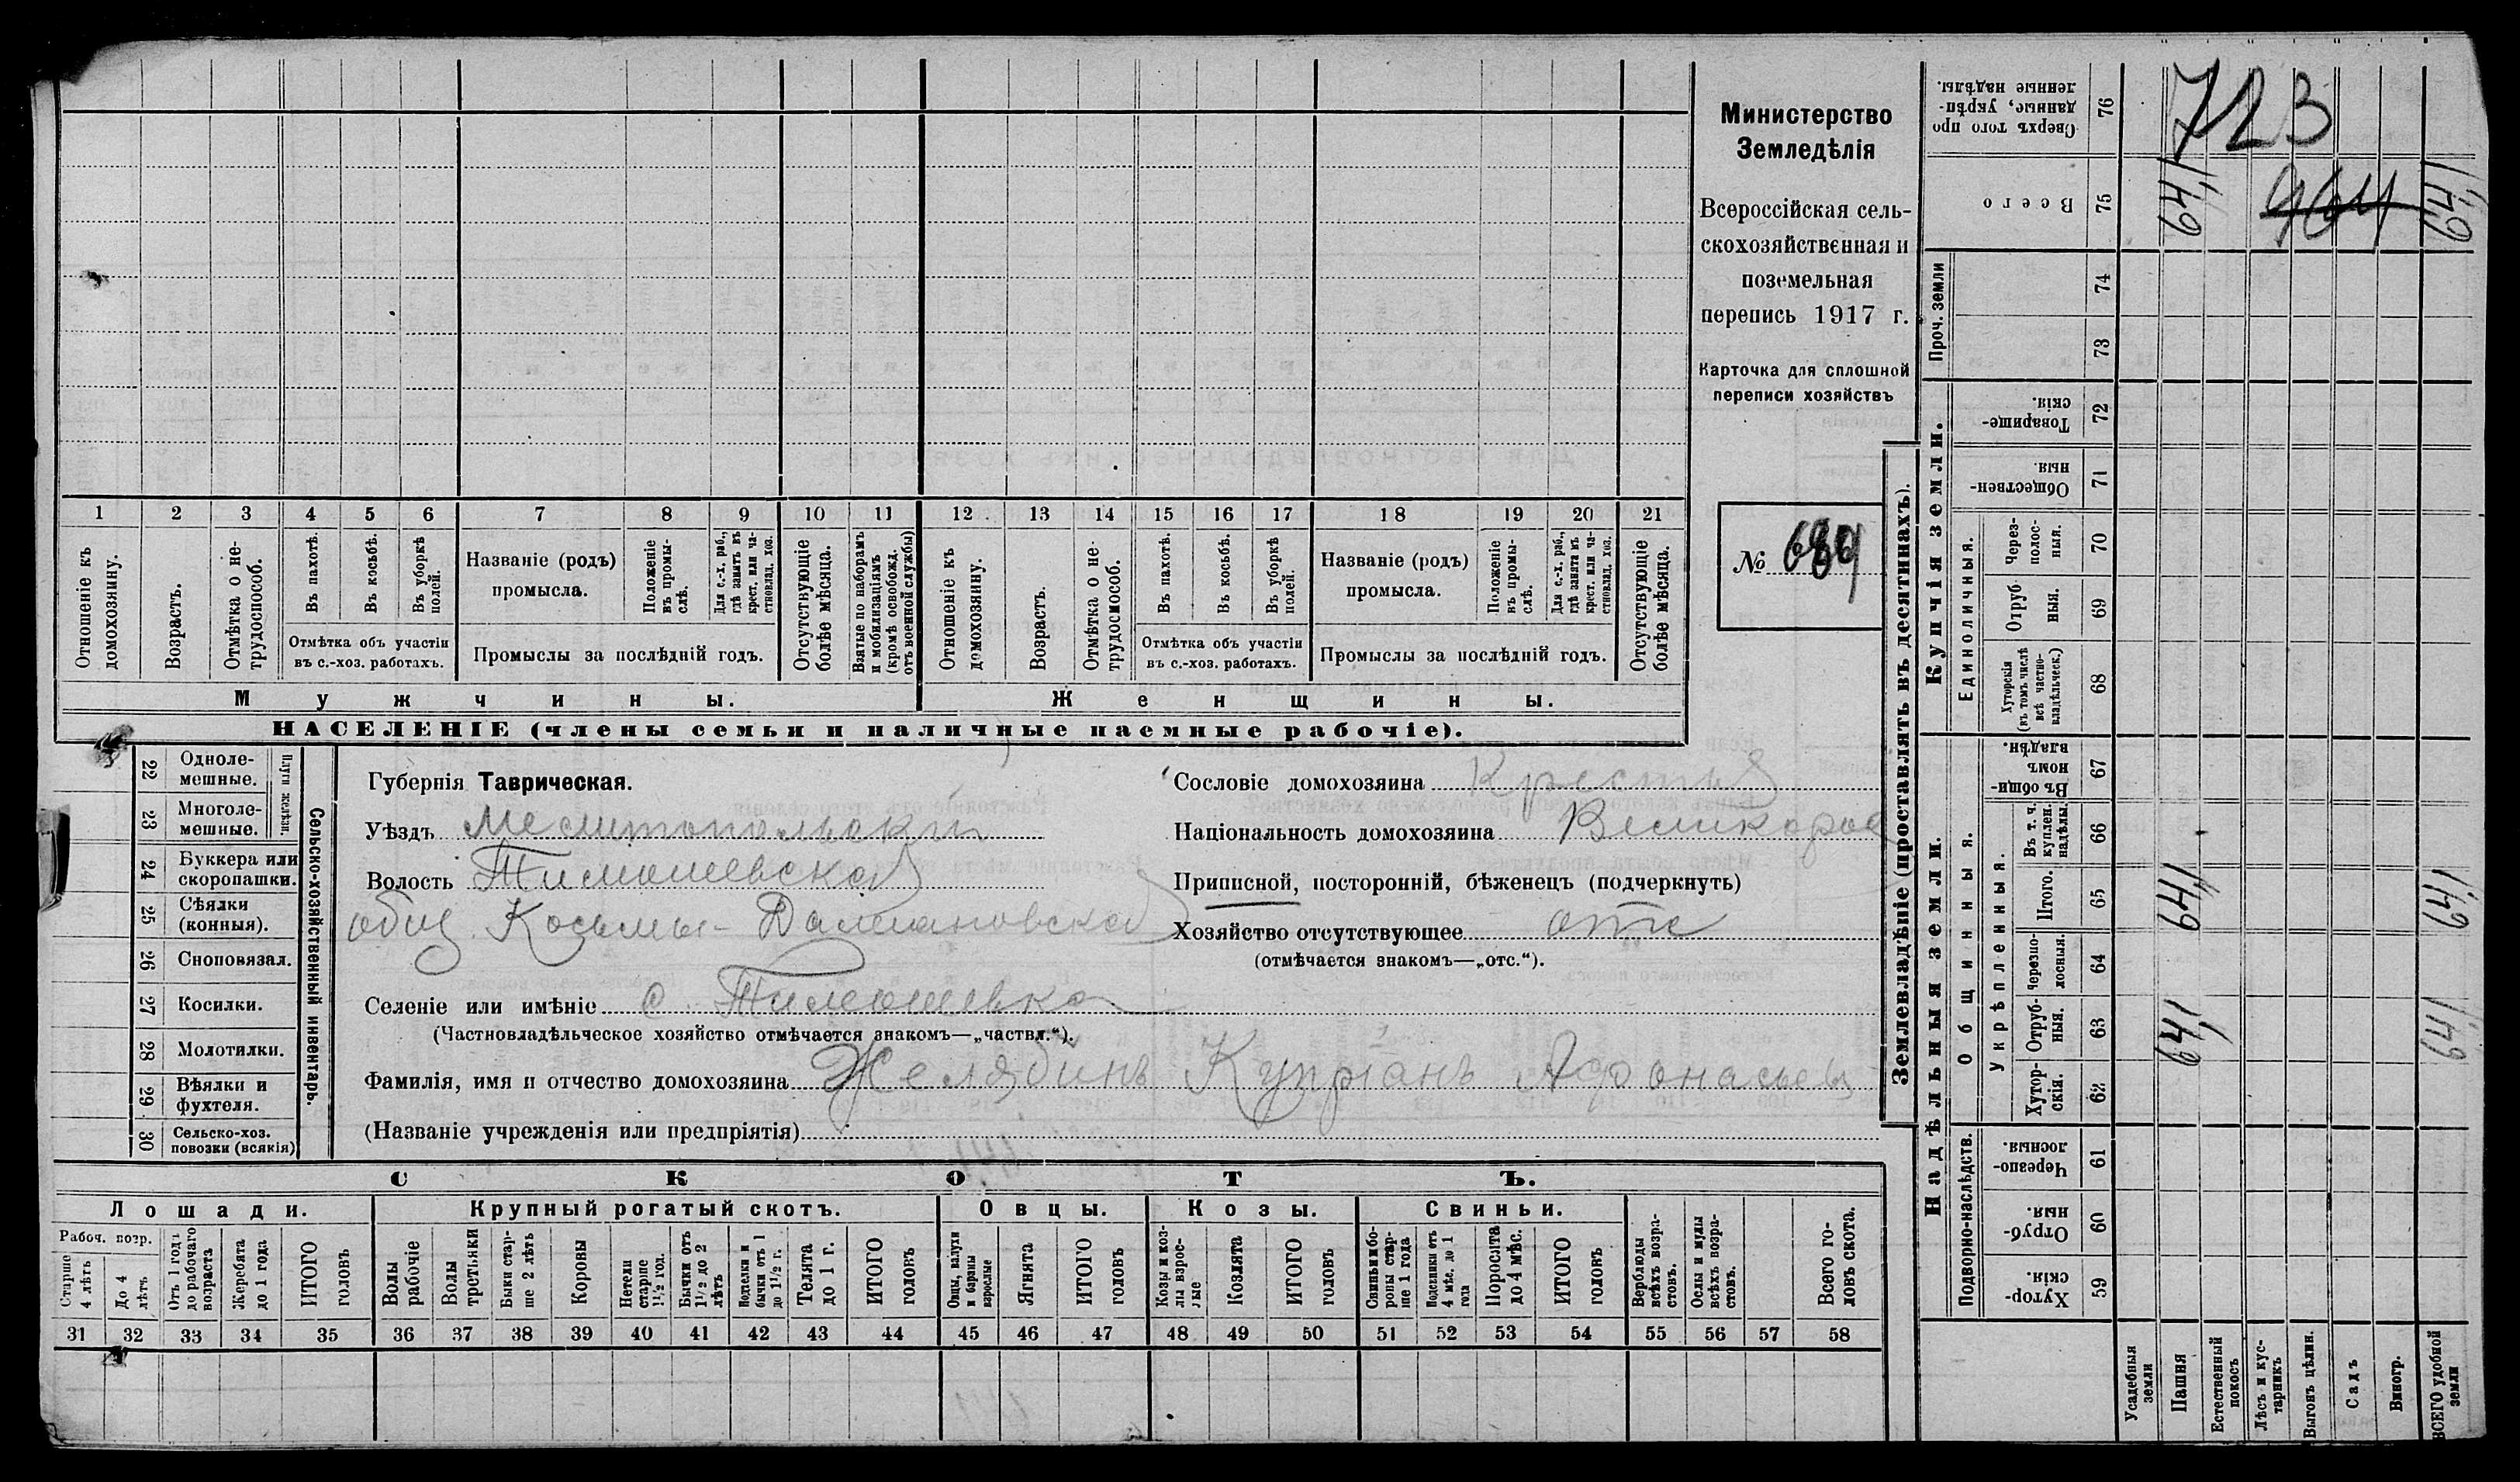 Министерство
Земледѣлія
Всероссійская сель-
скохозяйственная и
поземельная
перепись 1917 г.
Карточка для сплошной
переписи хозяйствъ
№
1 2 3 4 5 6 7 8 9 10 11 12 13 14 15 16 17 18 19 20 21
Отношеніе къ домохозяину.
Возрастъ.
Отмѣтка о не-трудоспособ.
Въ пахотѣ.
Въ косьбѣ.
Въ уборкѣ полей.
Отмѣтка объ участіи
въ с.-хоз. работахъ.
Названіе (родъ)
промысла.
Положеніе въ промы-слѣ.
Для с.-х. раб., гдѣ занятъ въ крест. или ча-стновлад. хоз.
Промыслы за послѣдній годъ.
Отсутствующіе болѣе мѣсяца.
Взятые по наборамъ и мобилизаціямъ (кромѣ освобожд. отъ военной службы)
Отношеніе къ домохозяину.
Возрастъ.
Отмѣтка о не-трудоспособ.
Въ пахотѣ.
Въ косьбѣ.
Въ уборкѣ полей.
Отмѣтка объ участіи
въ с.-хоз. работахъ.
Названіе (родъ)
промысла.
Положеніе въ промы-слѣ.
Для с.-х. раб., гдѣ занята въ крест. или ча-стновлад. хоз.
Промыслы за послѣдній годъ.
Отсутствующіе болѣе мѣсяца.
Мужчины.
Женщины.
НАСЕЛЕНІЕ (члены семьи и наличные наемные рабочіе).
22 Одноле-мешные.
23 Многоле-мешные.
Плуги желѣзн.
24 Буккера или скоропашки.
25 Сѣялки (конныя).
26 Сноповязал.
27 Косилки.
28 Молотилки.
29 Вѣялки и фухтеля.
30 Сельско-хоз. повозки (всякія)
Сельско-хозяйственный инвентарь.
Губернія Таврическая.
Уѣздъ Мелитопольскій
Волость Тимошевской
общ. Козьмы-Далмановской
Селеніе или имѣніе с. Тимошевка
(Частновладѣльческое хозяйство отмѣчается знакомъ—„частвл.“).
Фамилія, имя и отчество домохозяина Желябинъ Купріанъ Афонасьев
(Названіе учрежденія или предпріятія)
Сословіе домохозяина Крестья
Національность домохозяина Великорос
Приписной, посторонній, бѣженецъ (подчеркнуть)
Хозяйство отсутствующее отс
(отмѣчается знакомъ—„отс.“).
СКОТЪ.
Лошади.
Крупный рогатый скотъ.
Овцы.
Козы.
Свиньи.
Рабоч. возр.
Старше 4 лѣтъ
До 4 лѣтъ
Отъ 1 года до рабочаго возраста
Жеребята до 1 года
ИТОГО головъ
Волы рабочіе
Волы третьяки
Быки стар-ше 2 лѣтъ
Коровы
Нетели старше 1½ год.
Бычки отъ 1½ до 2 лѣтъ
Подтелки и бычки отъ 1 до 1½ г.
Телята до 1 г.
ИТОГО головъ
Овцы, валухи и бараны взрослые
Ягнята
ИТОГО головъ
Козы и коз-лы взрос-лые
Козлята
ИТОГО головъ
Свиньи и бо-ровы стар-ше 1 года
Подсвинки отъ 4 мѣс. до 1 года
Поросята до 4 мѣс.
ИТОГО головъ
Верблюды всѣхъ возра-стовъ.
Ослы и мулы всѣхъ возра-стовъ.
Всего го-ловъ скота.
31 32 33 34 35 36 37 38 39 40 41 42 43 44 45 46 47 48 49 50 51 52 53 54 55 56 57 58
Землевладѣніе (проставлять въ десятинахъ).
Надѣльныя земли.
Купчія земли.
Проч. земли
Подворно-наслѣдств.
Общинныя.
Укрѣпленныя.
Единоличныя.
Сверхъ того про данные, укрѣп-ленные надѣлы. 76
Всего 75
74
73
Товарище-скія. 72
Обществен-ныя. 71
Через-полос-ныя. 70
Отруб-ныя. 69
Хуторскія (въ томъ числѣ всѣ частно-владѣльческ.) 68
Въ общи-номъ владѣн. 67
Въ т. ч. куплен. надѣлы. 66
Итого. 65
Черезпо-лосныя. 64
Отруб-ныя. 63
Хутор-скія. 62
Черезпо-лосныя 61
Отруб-ныя. 60
Хутор-скія. 59
Усадебныя земли
Пашня
Естественный покосъ
Лѣсъ и кус-тарникъ
Выгонъ цѣлин.
Садъ
Виногр.
ВСЕГО удобной земли
723
964